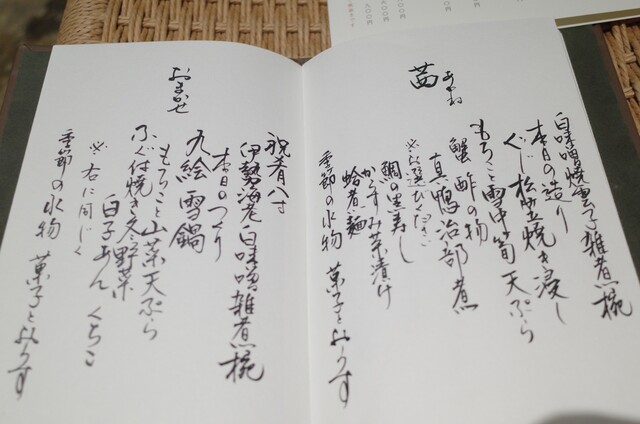 茜 あかね
白味噌焼雲子雑煮椀
本日の造り
ぐじ松笠焼き浸し
もろこと雪中筍天ぷら
蟹酢の物
真鴨治部煮
※お選びください
鯛の黒寿し
からすみ茶漬け
蛤煮麺
季節の水物 菓子とおうす
おまかせ
祝肴八寸
伊勢海老白味噌雑煮椀
本日のつくり
九絵雪鍋
もろこと山菜天ぷら
ふぐ付焼き冬野菜
白子あん くちこ
※右に同じく
季節の水物 菓子とおうす